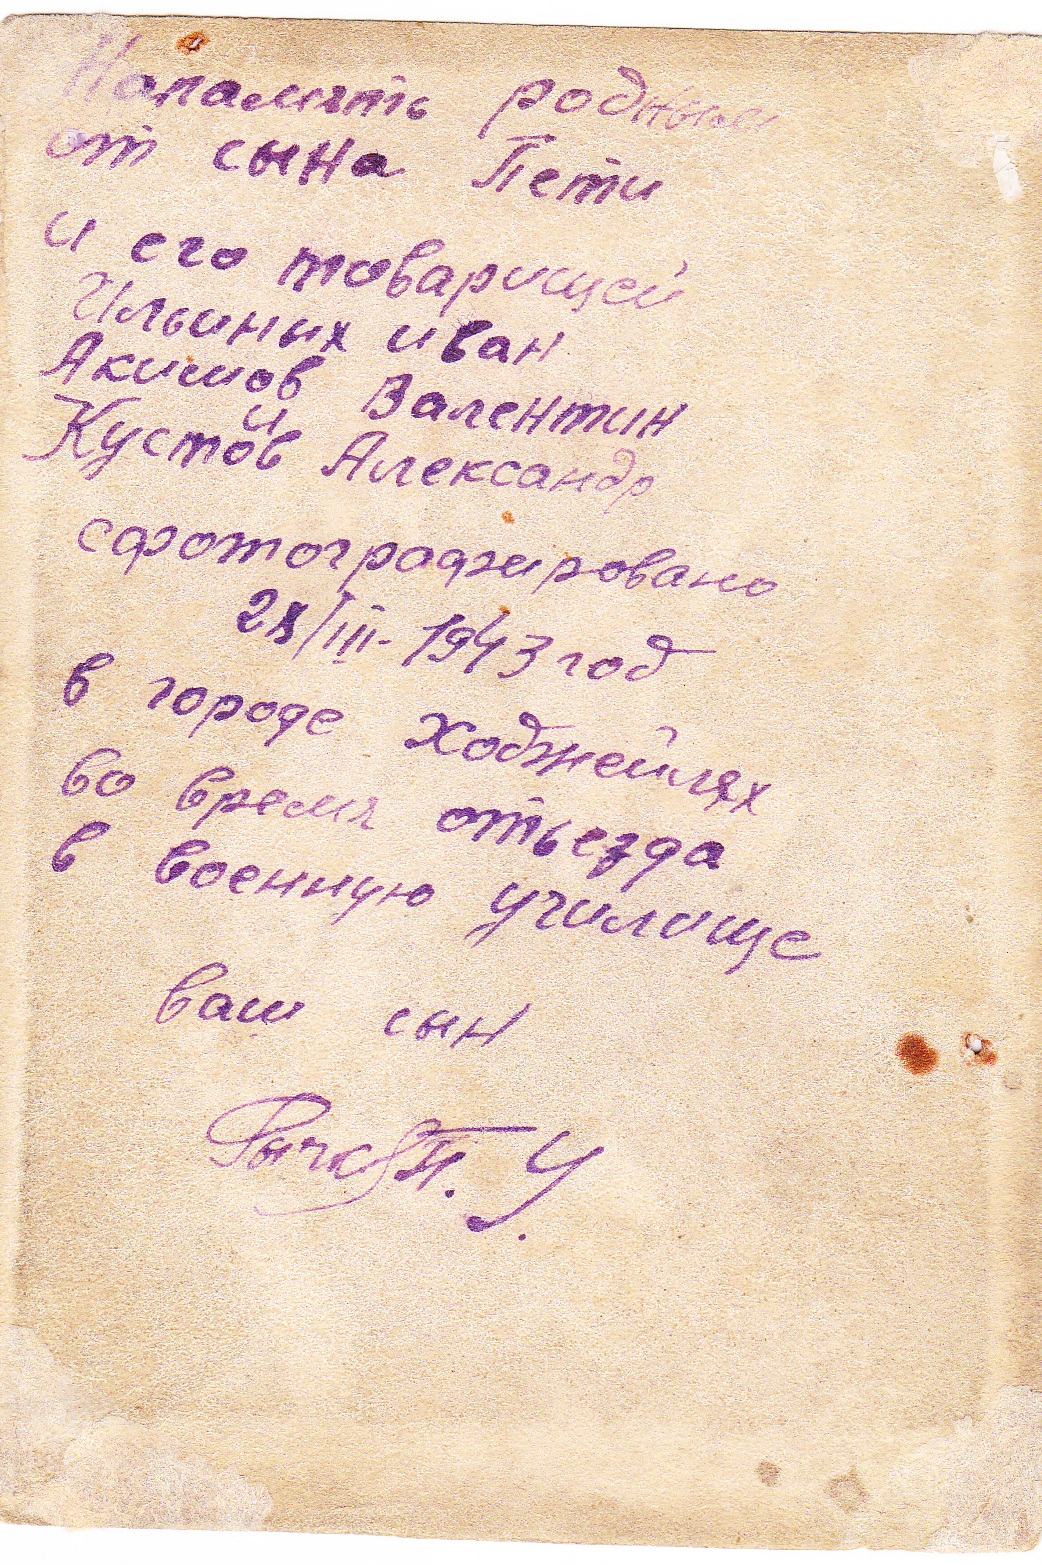 Напамять родным
от сына Пети
и его товарищей
Ильиных иван
Акимов Валентин
и
Кустов Александр
сфотографировано
28/III-1943 год
в городе Ходжейлях
во время отьезда
в военную училище
ваш сын
Рычк П. У.